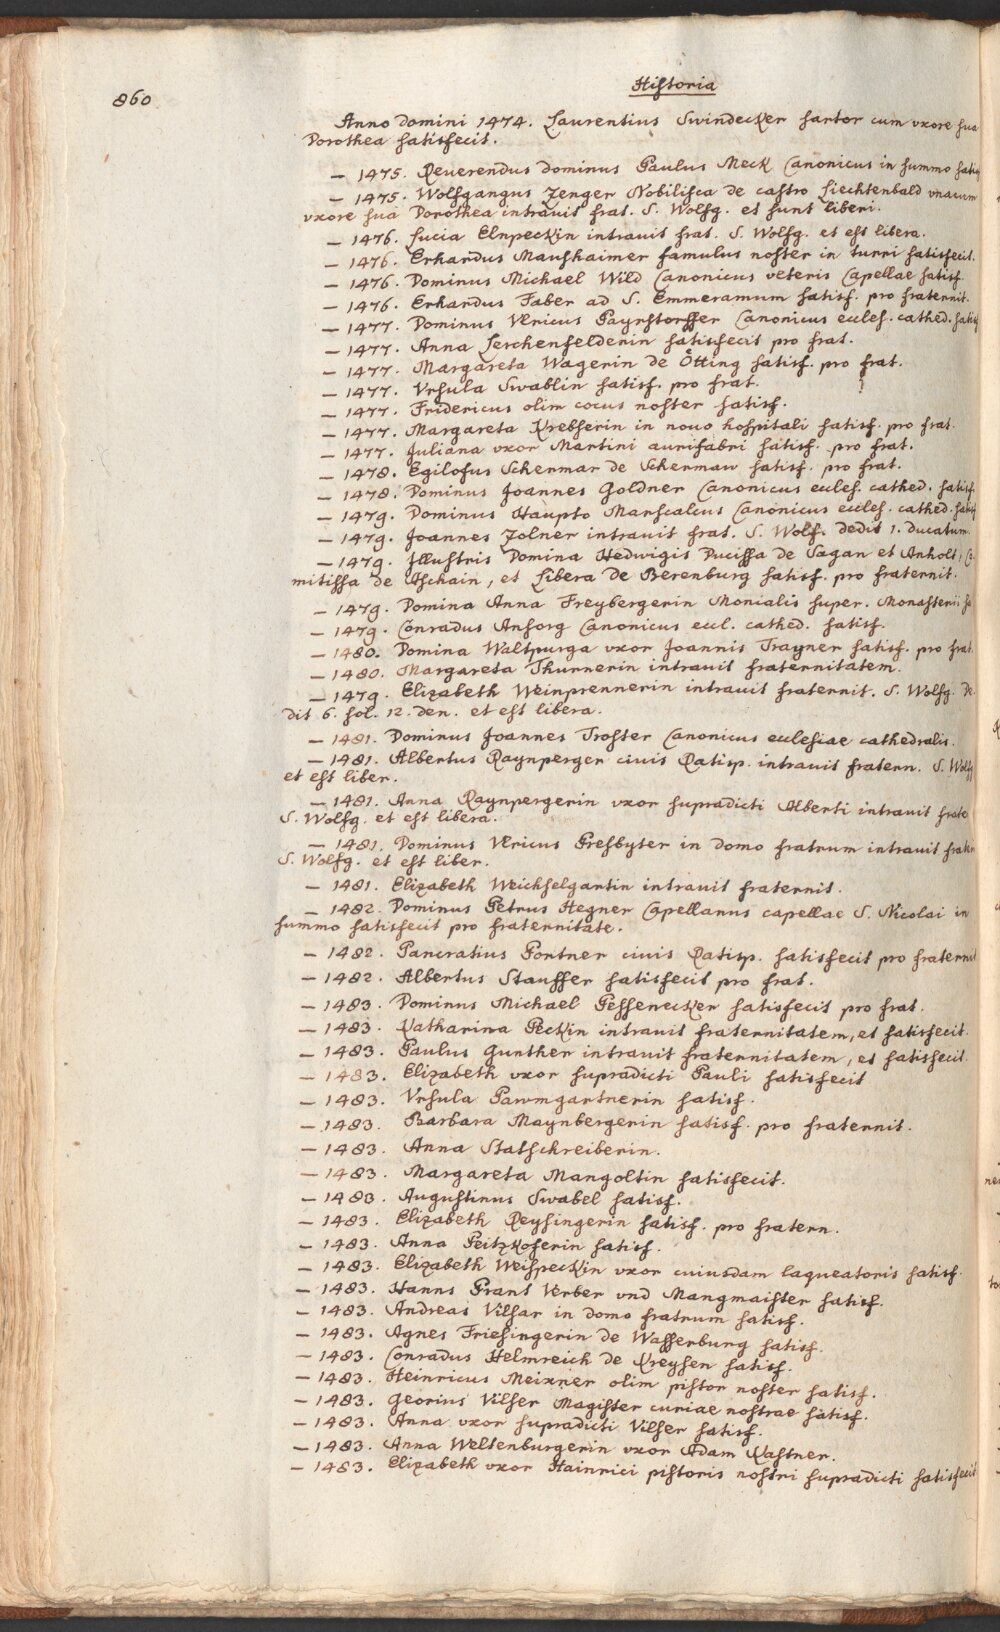 860
Historia
Anno domini 1474. Laurentius Swindecker sartor cum vxore sua
Dorothea satisfecit.
— 1475. Reuerendus dominus Paulus Meck Canonicus in summo satis
— 1475. Wolfgangus Zenger Nobilista de castro Liechtenbald vnacum
vxore sua Dorothea intrauit frat. S. Wolfg. et sunt liberi.
— 1476. Lucia Elnpeckin intrauit frat. S. Wolfg. et est libera.
— 1476. Erhardus Maushaimer famulus noster in turri satisfecit.
— 1476. Dominus Michael Wild Canonicus veteris Capellae satisf.
— 1476. Erhardus Faber ad S. Emmeramum satisf. pro fraternit.
— 1477. Dominus Vlricus Paynstorffer Canonicus eccles. cathed. satisf
— 1477. Anna Lerchenfelderin satisfecit pro frat.
— 1477. Margareta Wagerin de Ötting satisf. pro frat.
— 1477. Vrsula Swablin satisf. pro frat.
— 1477. Fridericus olim cocus noster satisf.
— 1477. Margareta Krebserin in nouo hospitali satisf. pro frat.
— 1477. Juliana vxor Martini aurifabri satisf. pro frat.
— 1478. Egilofus Schermar de Schermaw satisf. pro frat.
— 1478. Dominus Joannes Goldner Canonicus eccles. cathed. satisf.
— 1479. Dominus Haupto Marscalcus Canonicus eccles. cathed. satisf
— 1479. Joannes Zolner intrauit frat. S. Wolf. dedit 1. ducatum.
— 1479. Illustris Domina Hedwigis Ducissa de Sagan et Anholt, Co
mitissa de Aschain, et Libera de Berenburg satisf. pro fraternit.
— 1479. Domina Anna Freybergerin Monialis super. Monasterii sa
— 1479. Conradus Ansorg Canonicus eccl. cathed. satisf.
— 1480. Domina Waltpurga vxor Joannis Trayner satisf. pro frat.
— 1480. Margareta Thurnerin intrauit fraternitatem.
— 1479. Elizabeth Weinprennerin intrauit fraternit. S. Wolfg. De
dit 6. sol. 12. den. et est libera.
— 1481. Dominus Joannes Troster Canonicus ecclesiae cathedralis.
— 1481. Albertus Raynperger ciuis Ratisp. intrauit fratern. S. Wolfg
et est liber.
— 1481. Anna Raynpergerin vxor supradicti Alberti intrauit frate
S. Wolfg. et est libera.
— 1481. Dominus Vlricus Presbyter in domo fratrum intrauit frater
S. Wolfg. et est liber.
— 1481. Elizabeth Weichselgartin intrauit fraternit.
— 1482. Dominus Petrus Hegner Capellanus capellae S. Nicolai in
summo satisfecit pro fraternitate.
— 1482. Pancratius Portner ciuis Ratisp. satisfecit pro fraternit
— 1482. Albertus Stauffer satisfecit pro frat.
— 1483. Dominus Michael Pessenecker satisfecit pro frat.
— 1483. Katharina Peckin intrauit fraternitatem, et satisfecit.
— 1483. Paulus Gunther intrauit fraternitatem, et satisfecit.
— 1483. Elizabeth vxor supradicti Pauli satisfecit
— 1483. Vrsula Pawmgartnerin satisf.
— 1483. Barbara Maynbergerin satisf. pro fraternit.
— 1483. Anna Statschreiberin.
— 1483. Margareta Mangoltin satisfecit.
— 1483. Augustinus Swabel satisf.
— 1483. Elizabeth Reysingerin satisf. pro fratern.
— 1483. Anna Peitzkoferin satisf.
— 1483. Elizabeth Weispeckin vxor cuiusdam laqueatoris satisf.
— 1483. Hanns Grant Verber vnd Mangmaister satisf.
— 1483. Andreas Vilsar in domo fratrum satisf.
— 1483. Agnes Friesingerin de Wasserburg satisf.
— 1483. Conradus Helmreich de Kreysen satisf.
— 1483. Heinricus Meixner olim pistor noster satisf.
— 1483. Georius Vilser Magister curiae nostrae satisf.
— 1483. Anna vxor supradicti Vilser satisf.
— 1483. Anna Weltenburgerin vxor Adam Kastner.
— 1483. Elizabeth vxor Hainrici pistoris nostri supradicti satisfecit